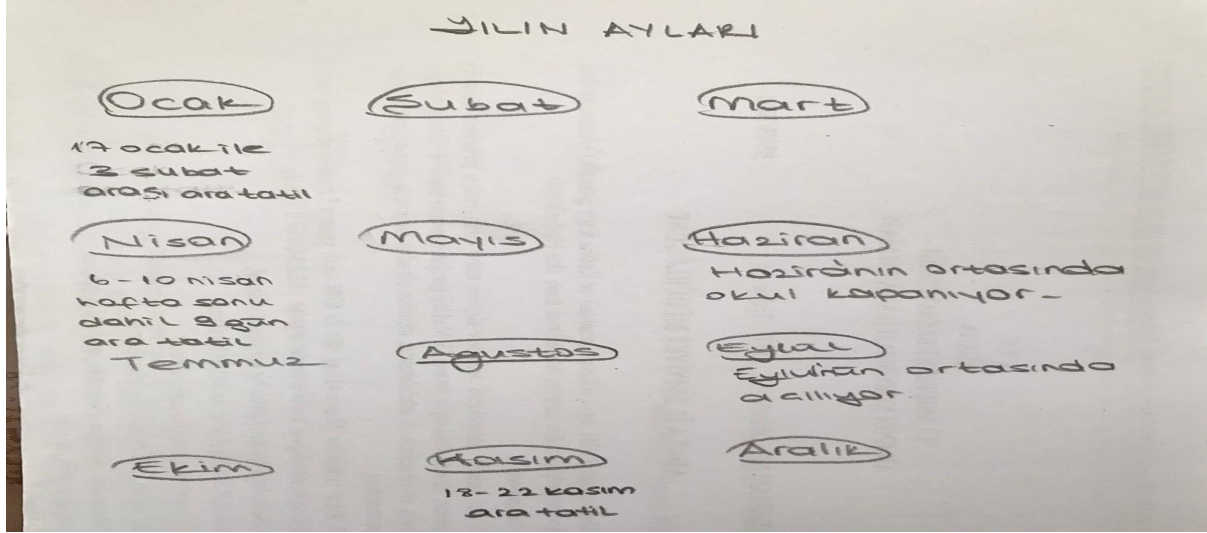 YILIN AYLARI
Ocak Şubat Mart
17 ocak ile
3 şubat
arası ara tatil
Nisan Mayıs Haziran
6-10 nisan
hafta sonu
dahil 9 gün
ara tatil
Haziranın ortasında
okul kapanıyor-
Temmuz Agustos Eylül
Eylulün ortasında
açıllıyor.
Ekim Kasım Aralık
18-22 kasım
ara tatil